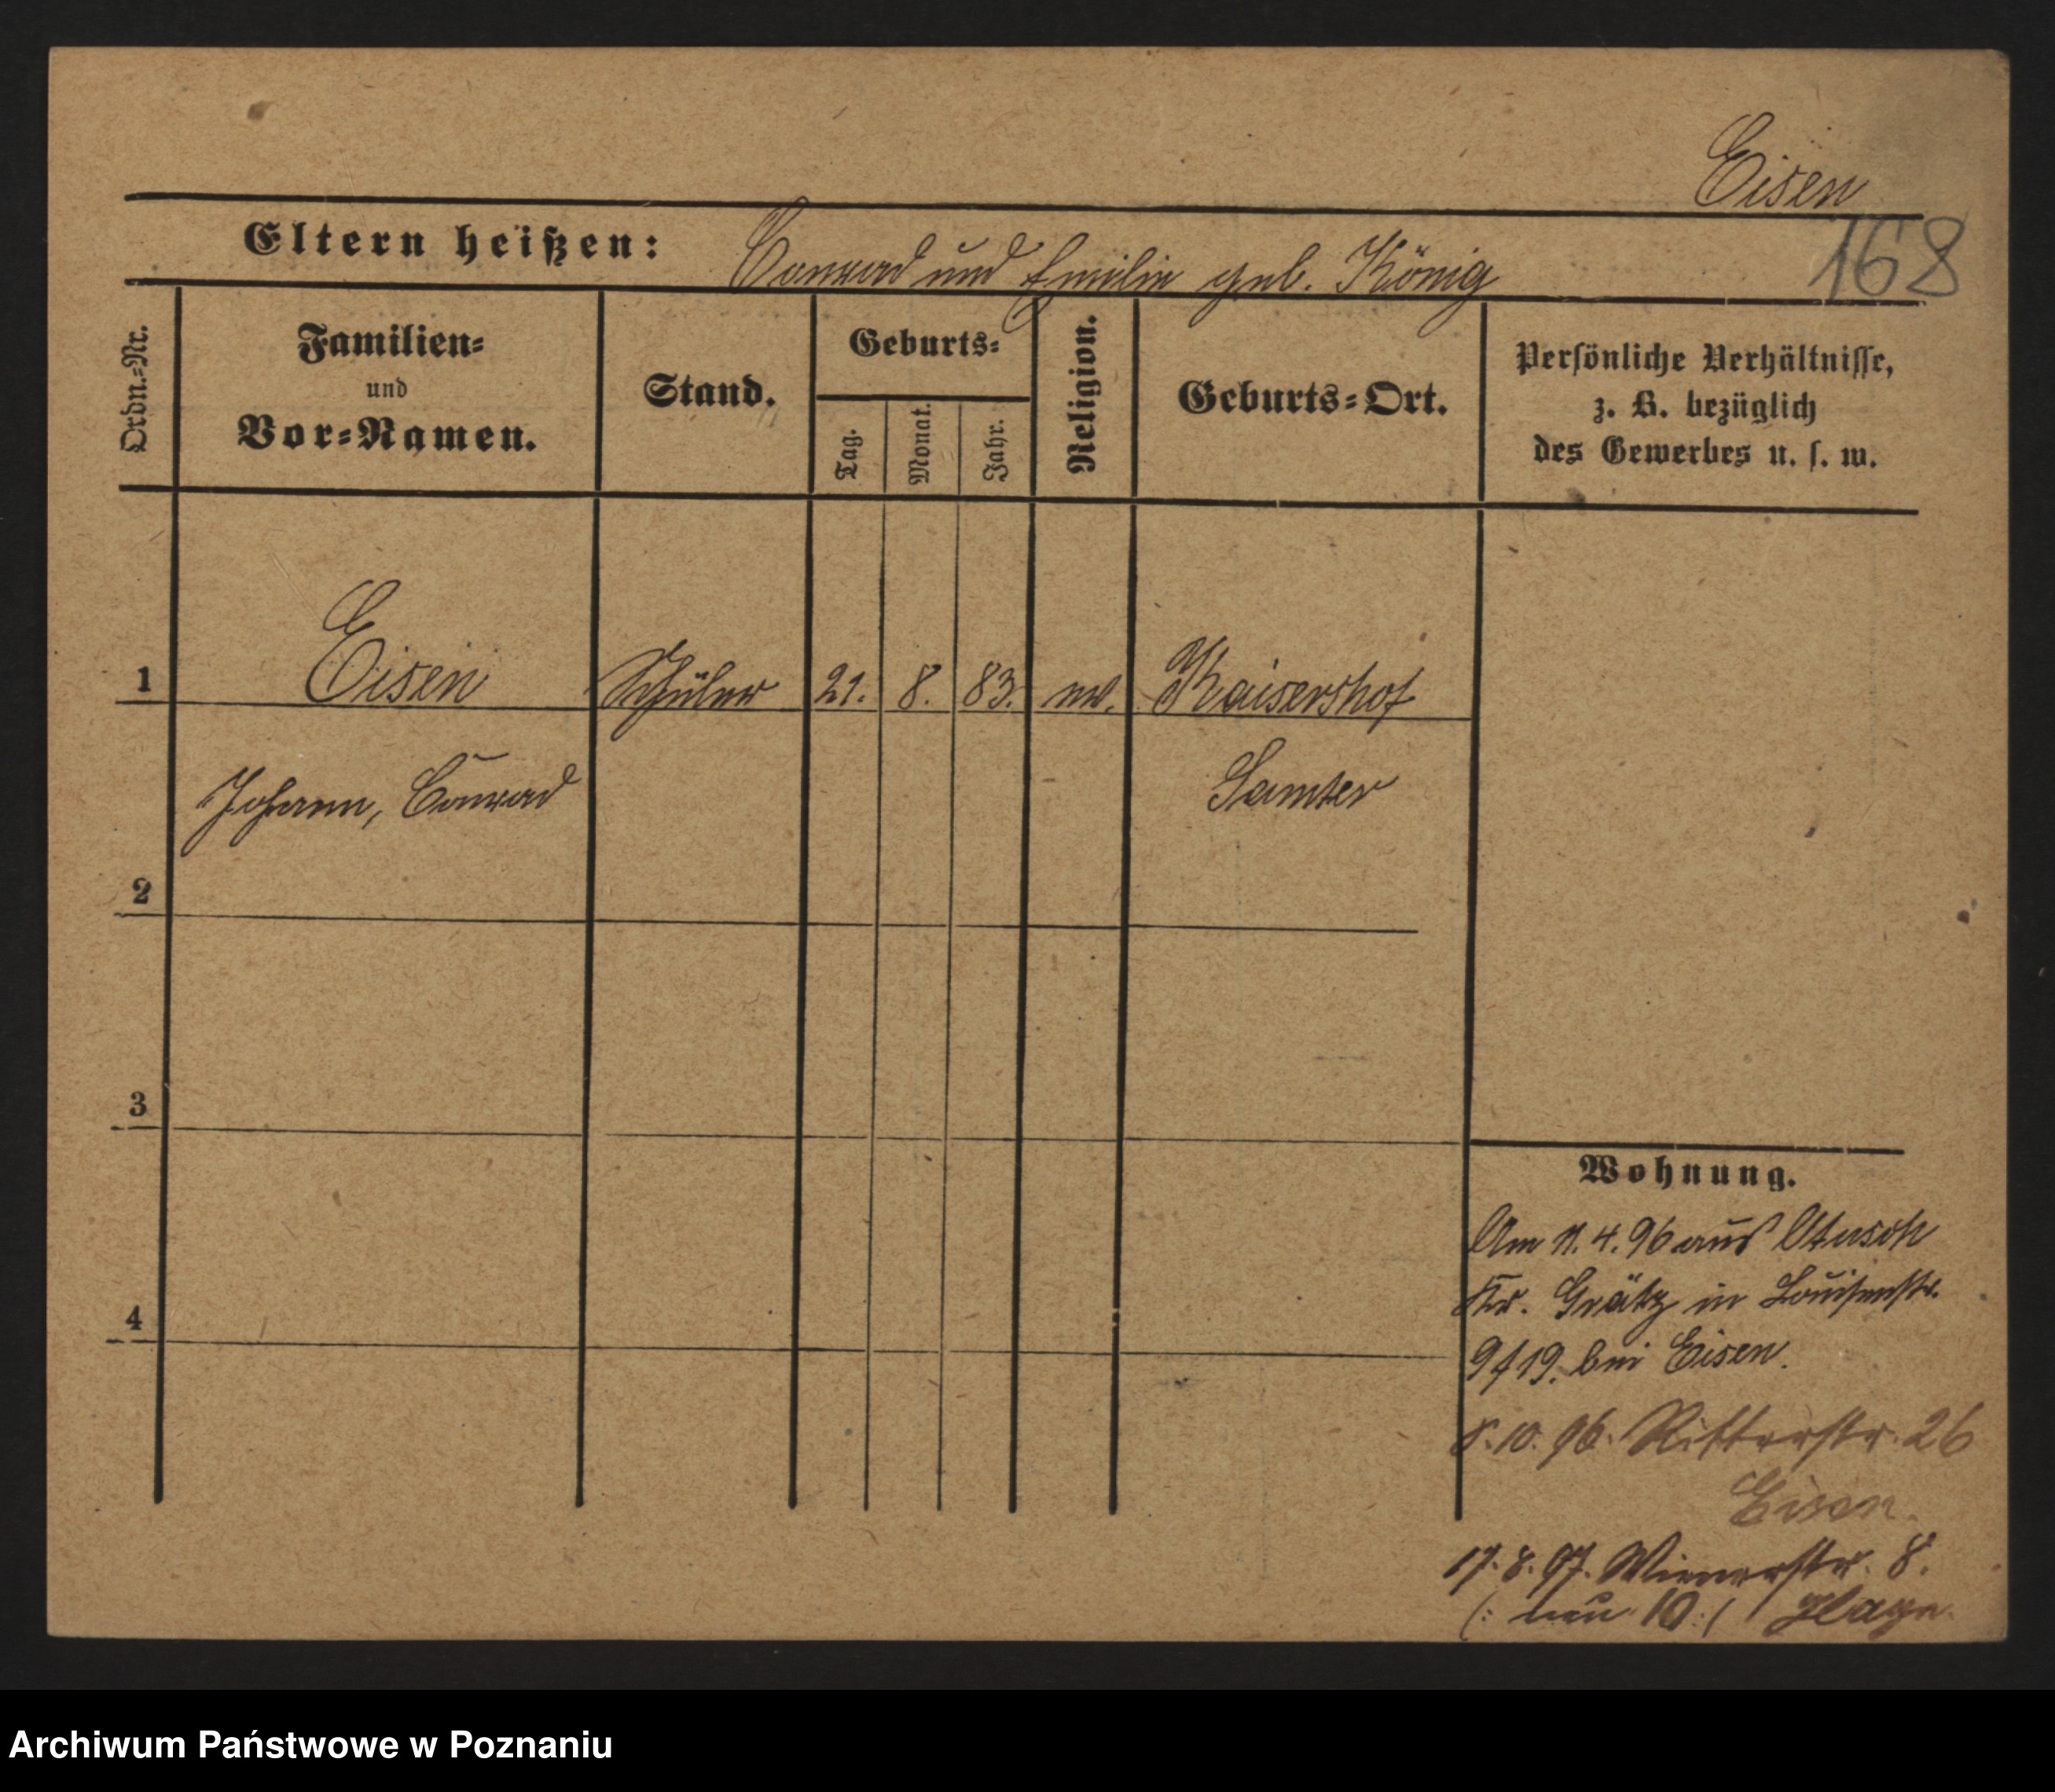 Eisen
168
Eltern heißen: Conrad und Emilie geb. König
Ordn.=Nr.
Familien=
und
Vor=Namen.
Stand.
Geburts=
Tag.
Monat.
Jahr.
Religion.
Geburts=Ort.
Persönliche Verhältnisse,
z. B. bezüglich
des Gewerbes u. s. w.
1 Eisen Schüler 21. 8. 83. ev. Kaisershof
Johann, Conrad Samter
2
3
4
Wohnung.
Am 11. 4. 96 aus Otusch
Kr. Grätz in Louisenstr.
9/19. bei Eisen.
8. 10. 96. Ritterstr. 26
Eisen.
17. 8. 97. Wienerstr. 8.
(: neu 10 :)
Archiwum Państwowe w Poznaniu